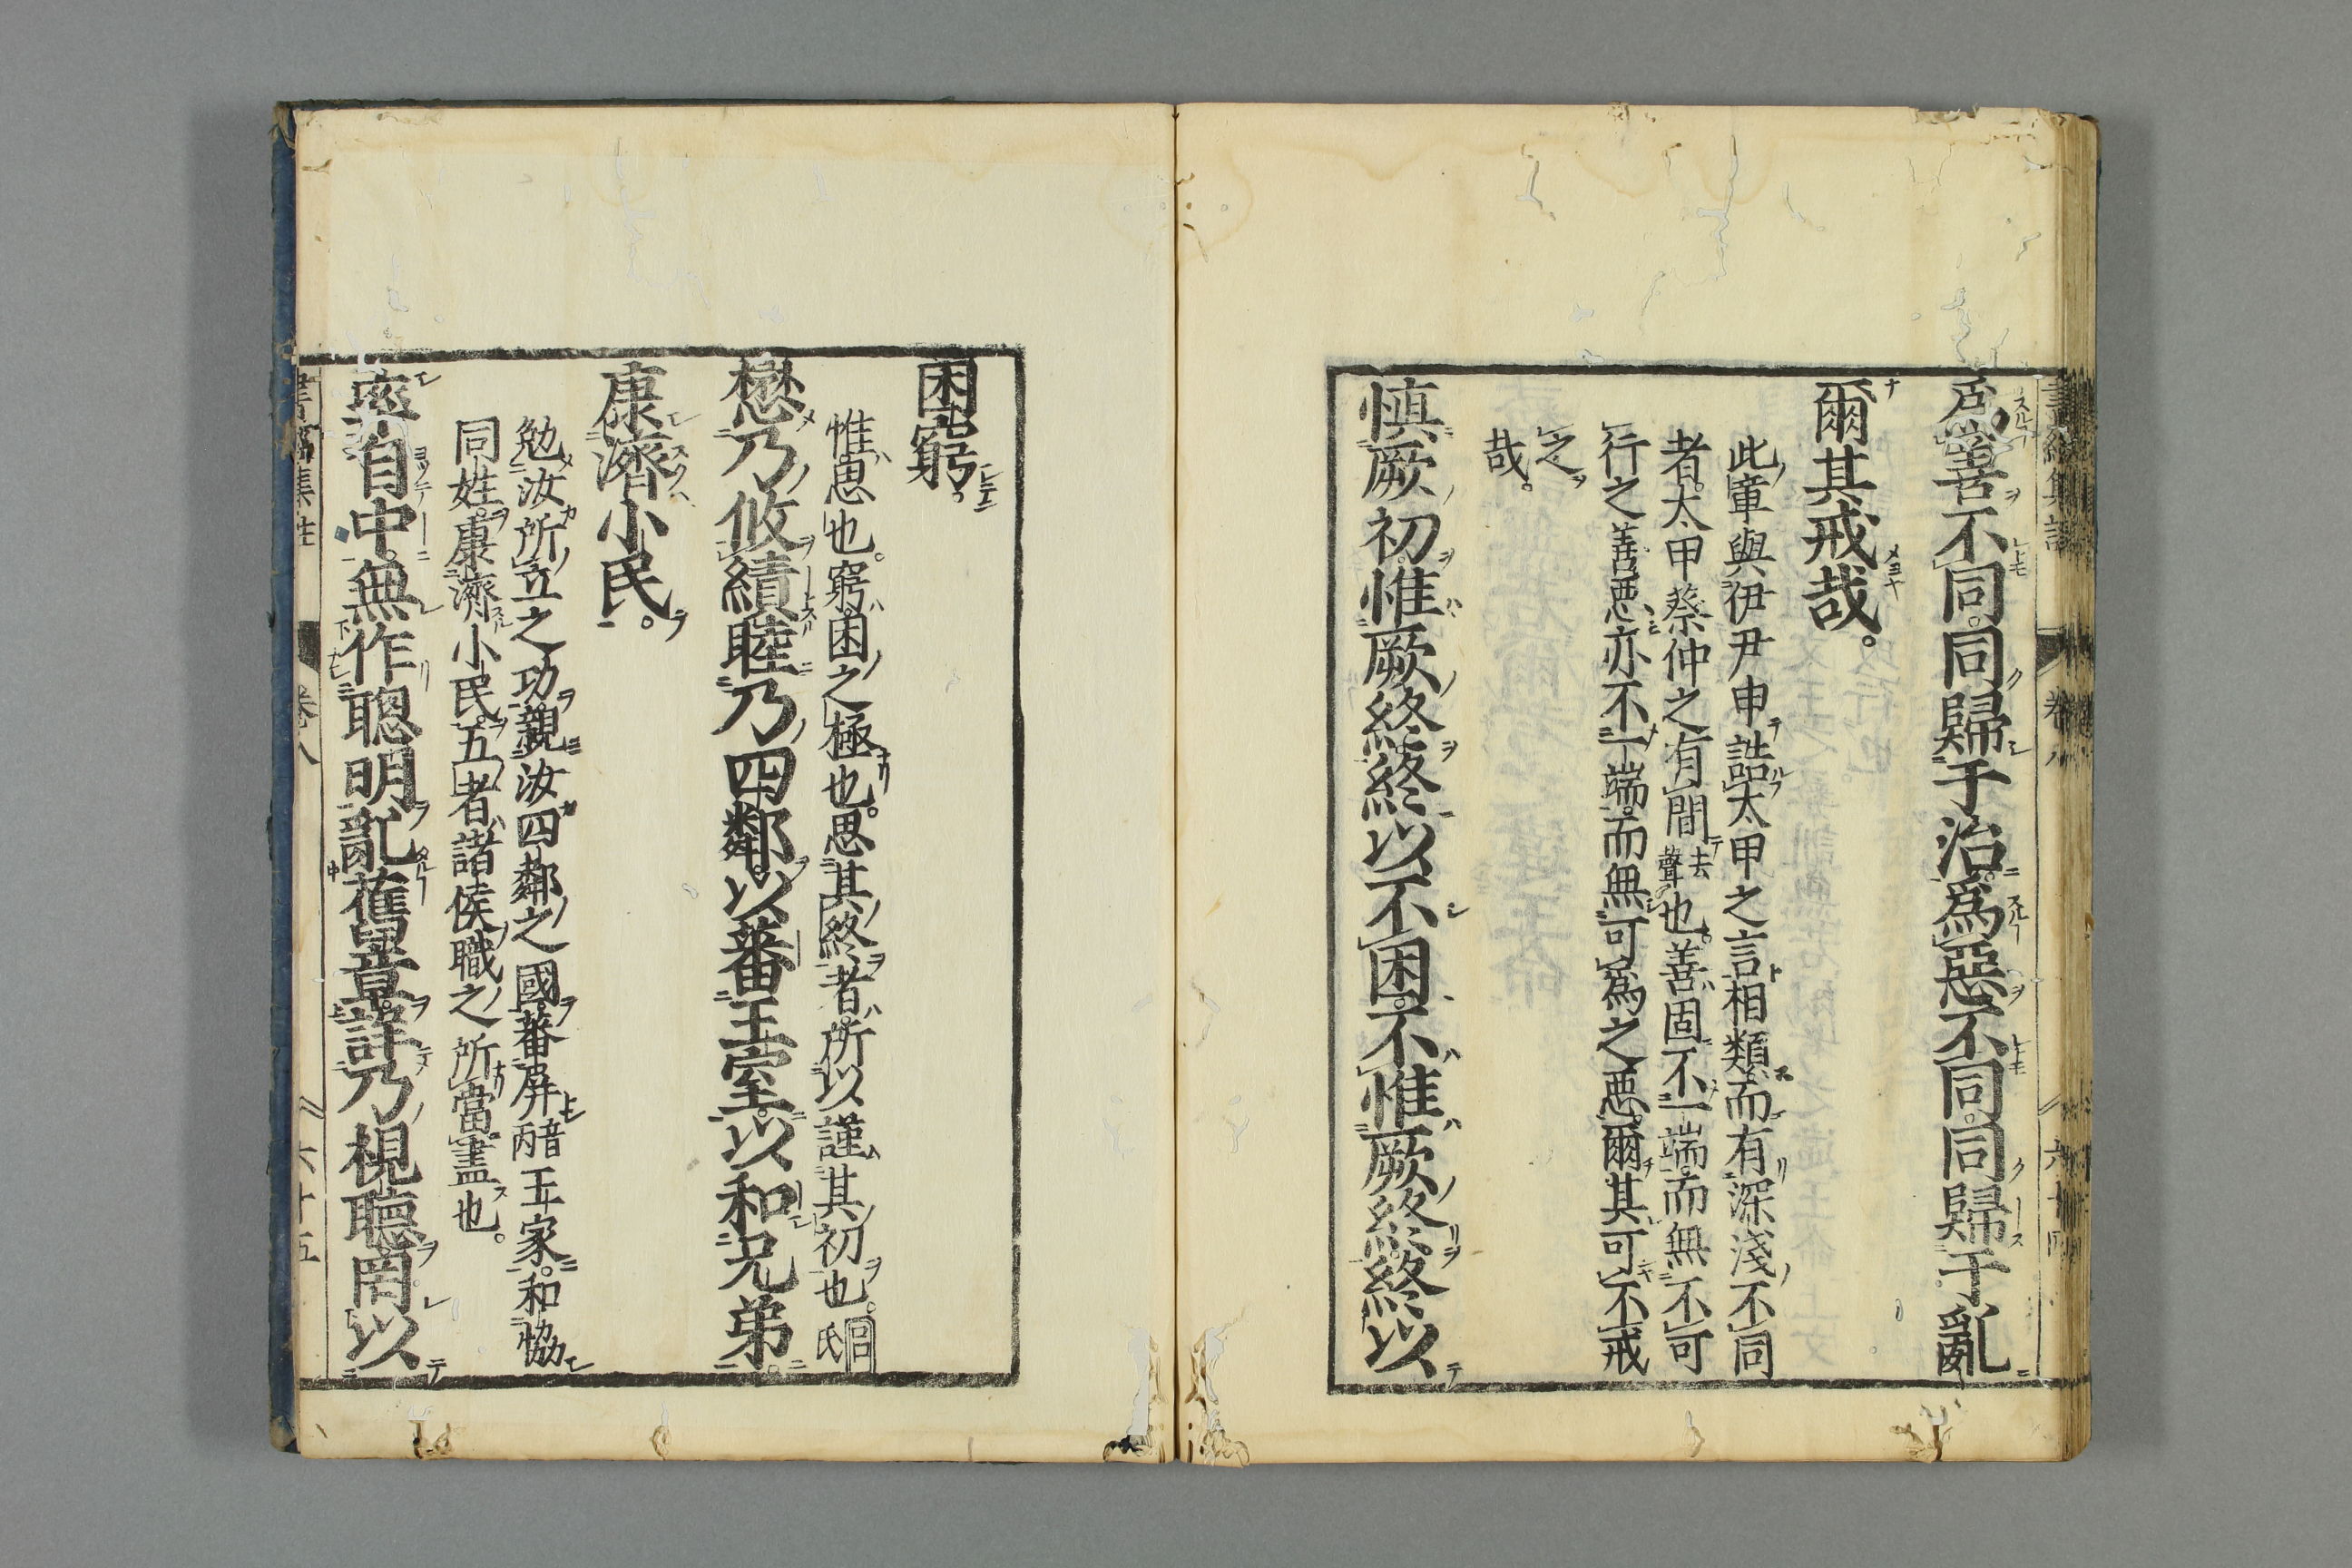 爲善不同。同歸于治。爲惡不同。同歸于亂
爾其戒哉。
此章與伊尹申誥太甲之言相類。而有深淺不同
者。太甲蔡仲之有間去聲也。善固不一端。而無不可
行之善。惡亦不一端。而無可爲之惡。爾其可不戒
之
哉。
愼厥初。惟厥終。終以不困。不惟厥終。終以
困窮。
惟思也。窮困之極也。思其終者。所以謹其初也。呂氏
懋乃攸績。睦乃四鄰。以蕃王室。以和兄弟。
康濟小民。
勉汝所立之功。親汝四鄰之國。蕃屏音丙王家。和協
同姓。康濟小民。五者諸侯職之所當盡也。
率自中。無作聰明亂舊章。詳乃視聽。罔以
卷八
六十五